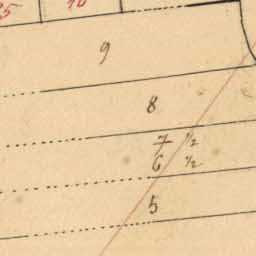 9
8
7 1/2
6 1/2
5